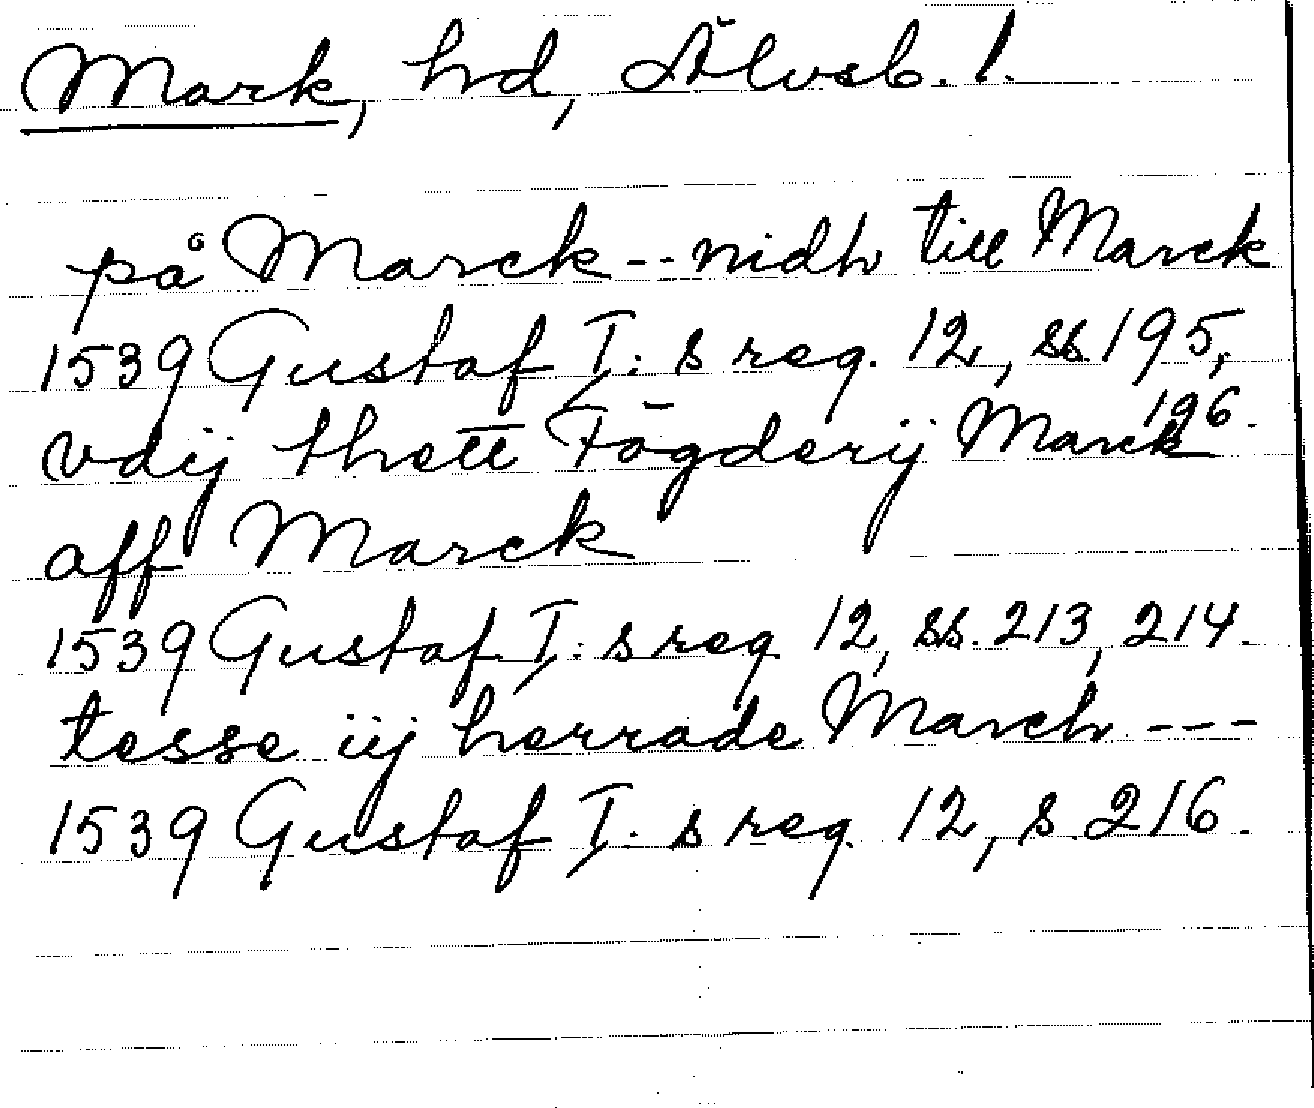 Mark, hd, Älvsb. l.
på Marck -- nidh till Marck
1539 Gustaf I: s reg. 12, ss 195,
196.
vdij thett Fögderij Marck
aff Marck
1539 Gustaf I: s reg 12, ss. 213, 214.
tesse iij herrade March ---
1539 Gustaf I. s reg. 12, s 216.